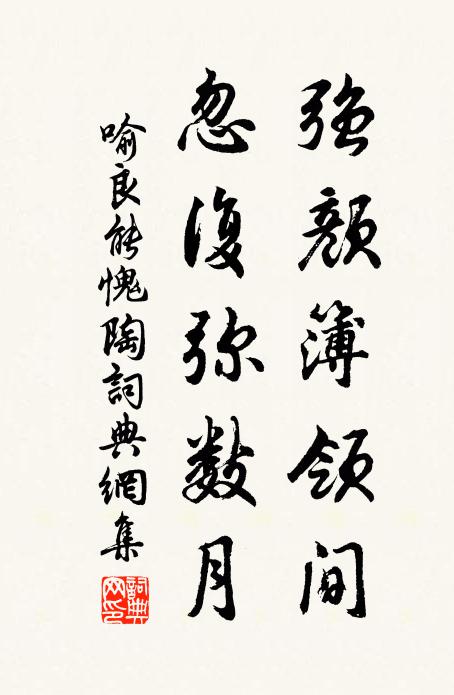 强颜簿领间
忽复弥数月
喻良能愧陶詞典網集
詞典网印